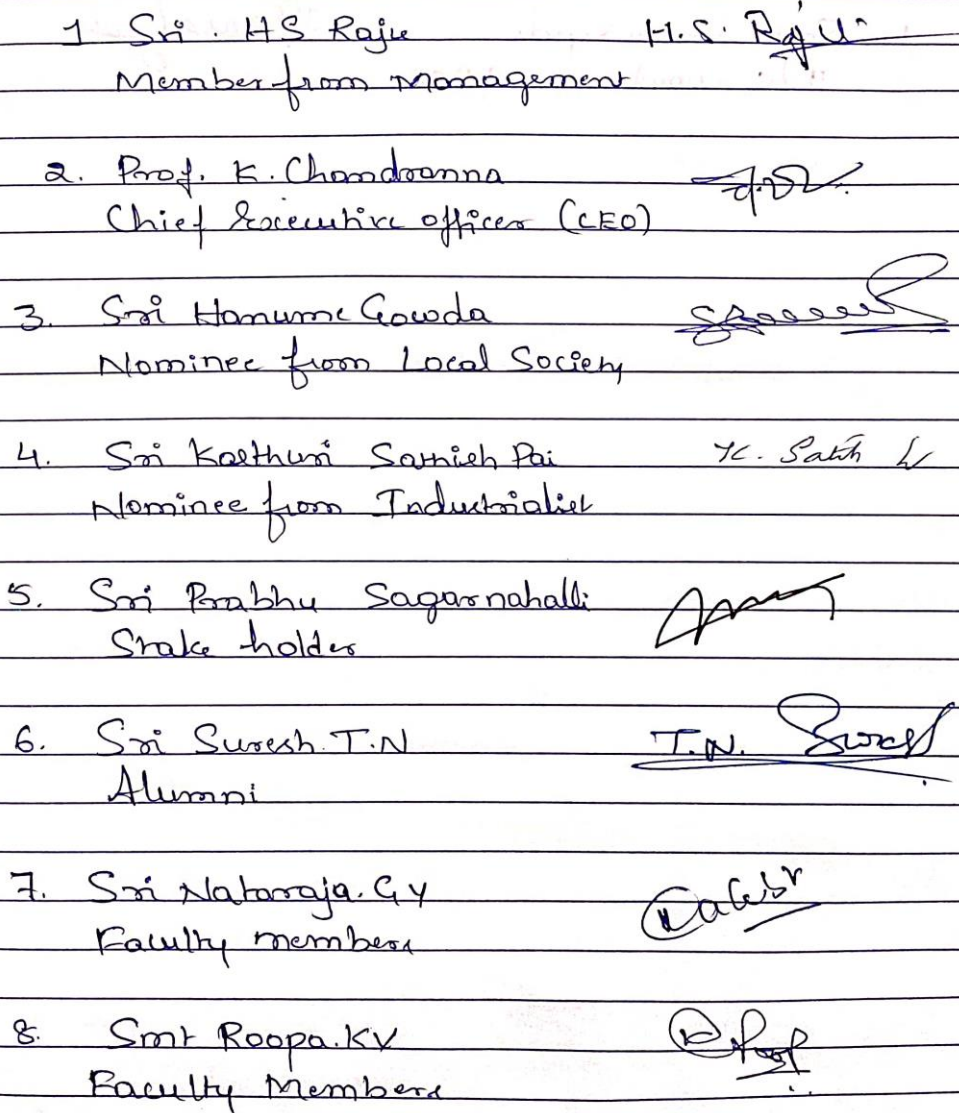 1 Sri. HS Raju H.S. Raju
Member from Management
2. Prof. K. Chandranna
Chief Executive officer (CEO)
3. Sri Hanume Gowda
Nominee from Local Society
4. Sri Kasthuri Sathish Pai K. Satish
Nominee from Industrialist
5. Sri Prabhu Sagarnahalli
Stake holder
6. Sri Suresh. T.N T.N. Suresh
Alumni
7. Sri Nataraja. G Y
Faculty members
8. Smt Roopa. KV
Faculty Members